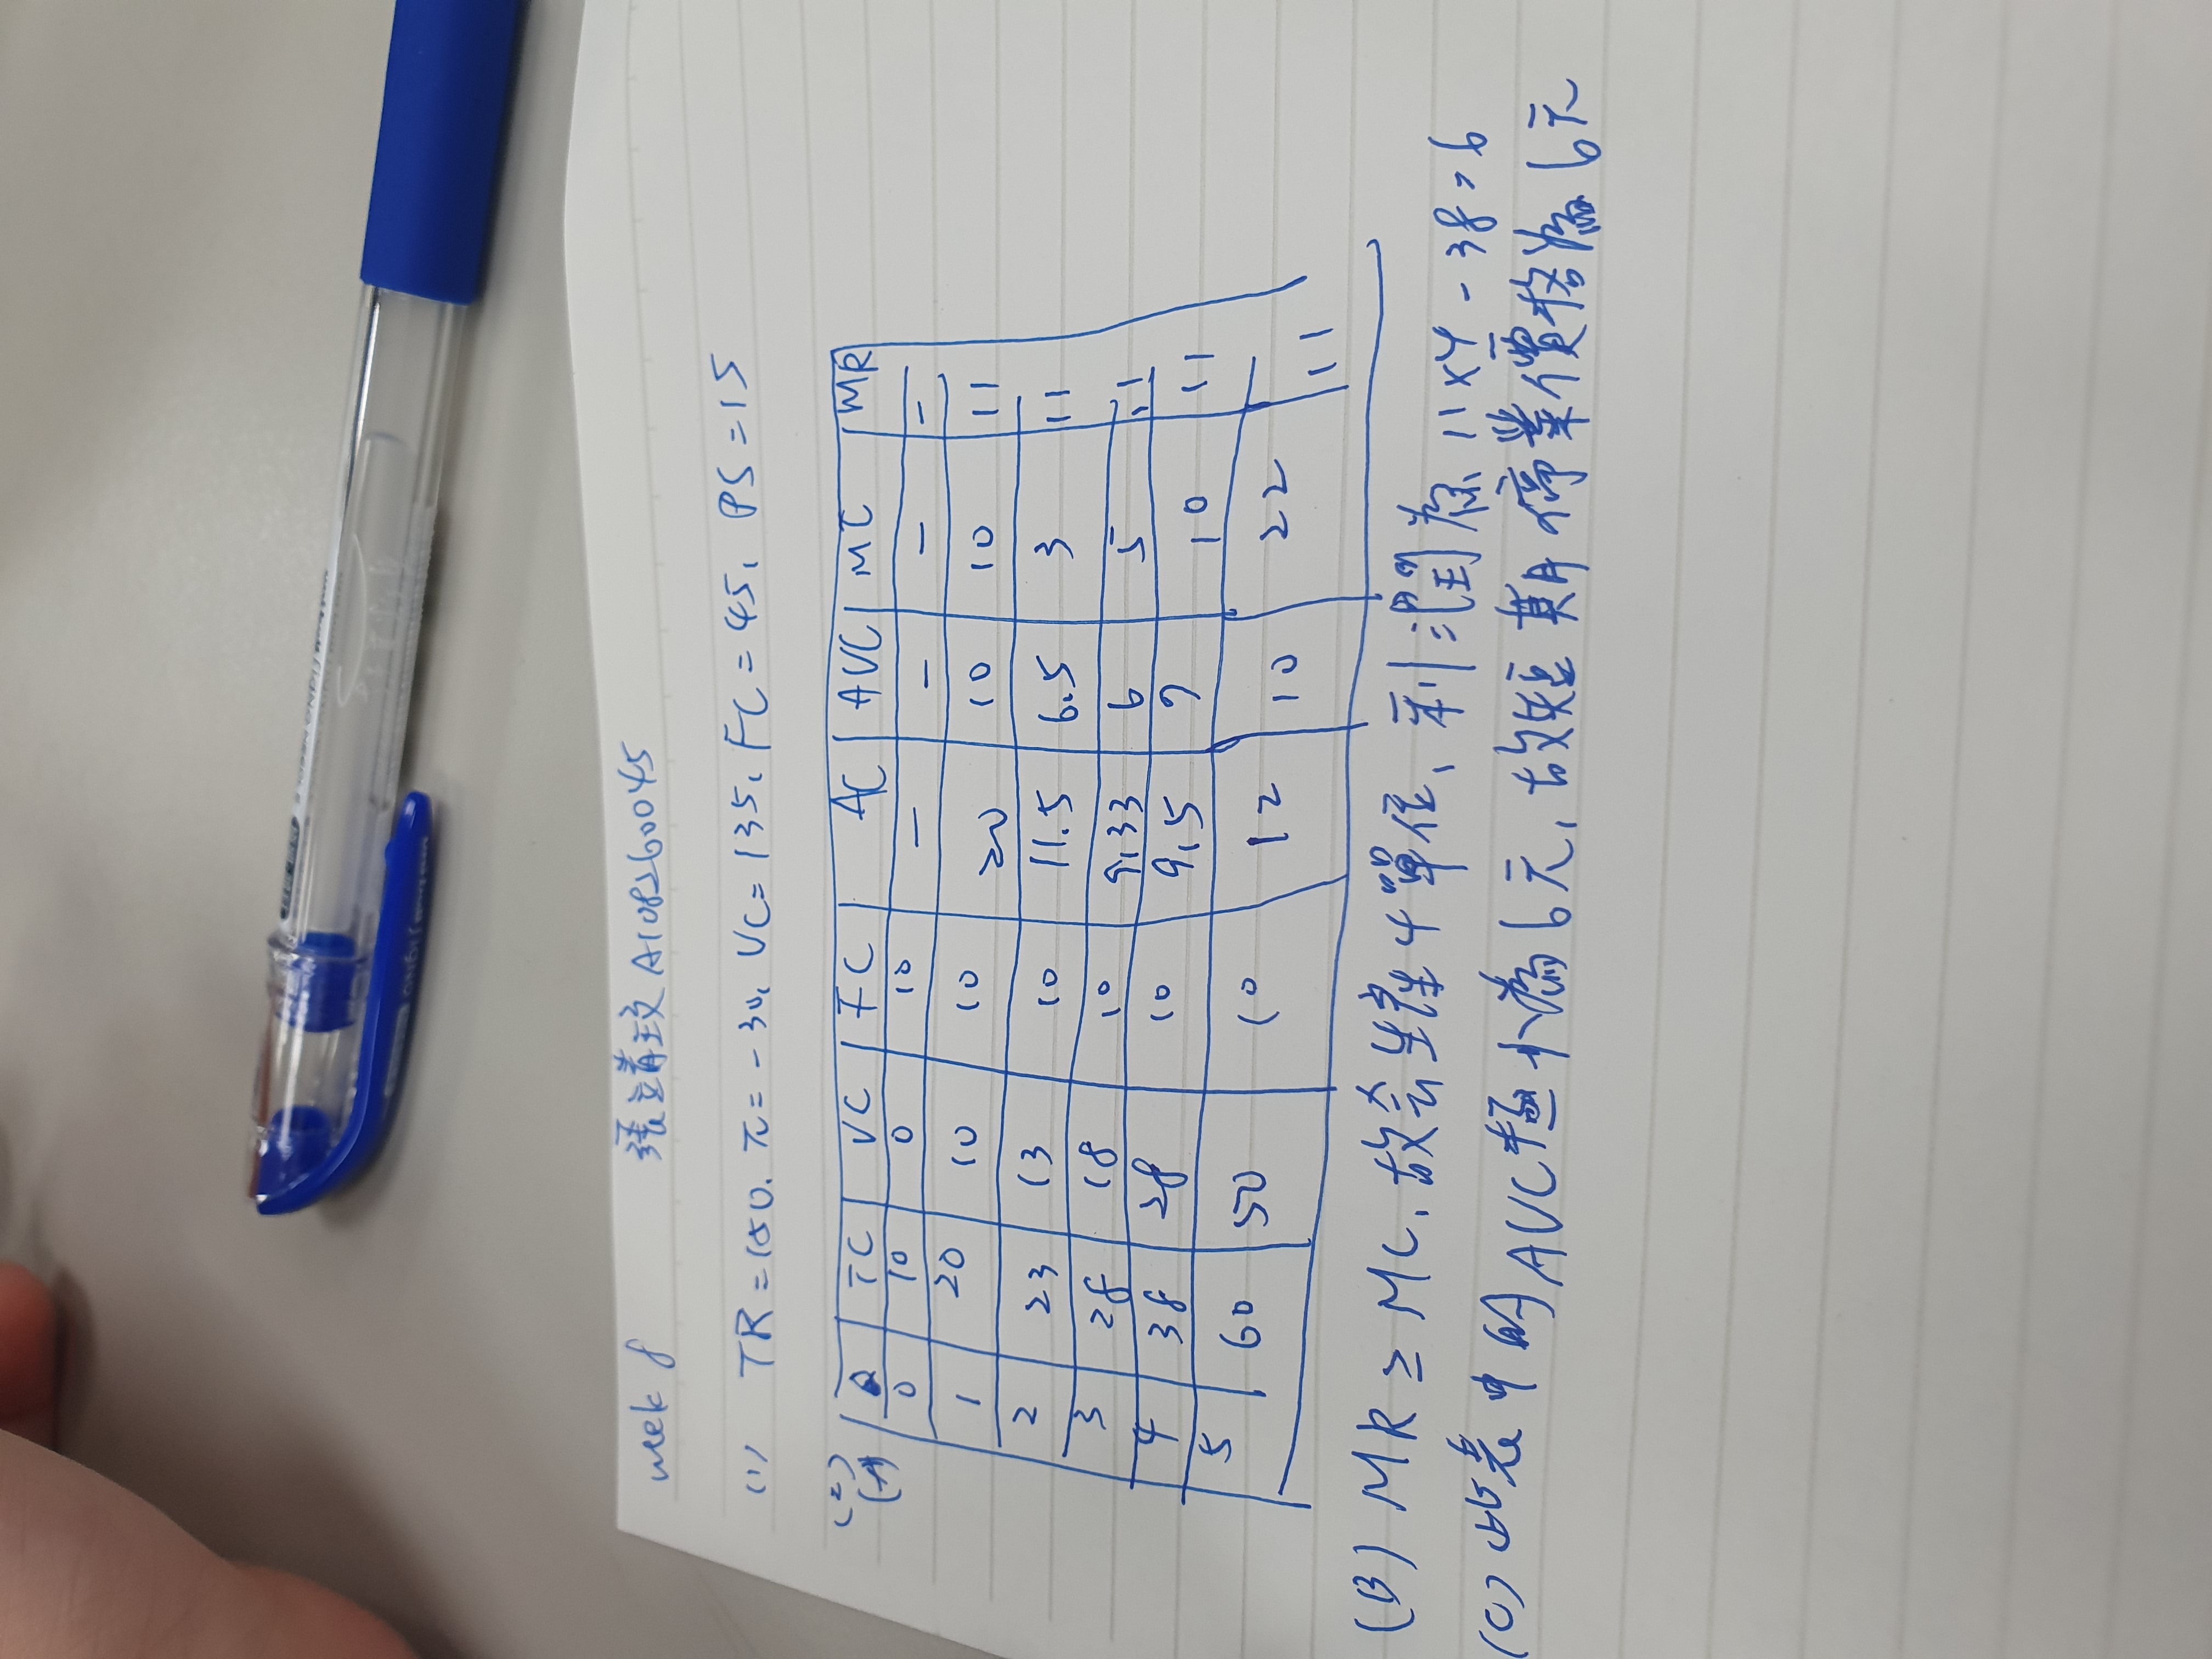 week 8 張靖玟 A108260045
(1) TR = 150. π = -30, VC = 135, FC = 45, PS = 15
(2)
(A) Q TC VC FC AC AVC MC MR
0 10 0 10 — — — —
1 20 10 10 20 10 10 11
2 23 13 10 11.5 6.5 3 11
3 28 18 10 9.33 6 5 11
4 38 28 10 9.5 7 10 11
5 60 50 10 12 10 22 11
(B) MR ≥ MC, 故会生產4單位, 利潤為 11×4-38=6
(C) 此表中的AVC極小為6元, 故短期停業價格為6元